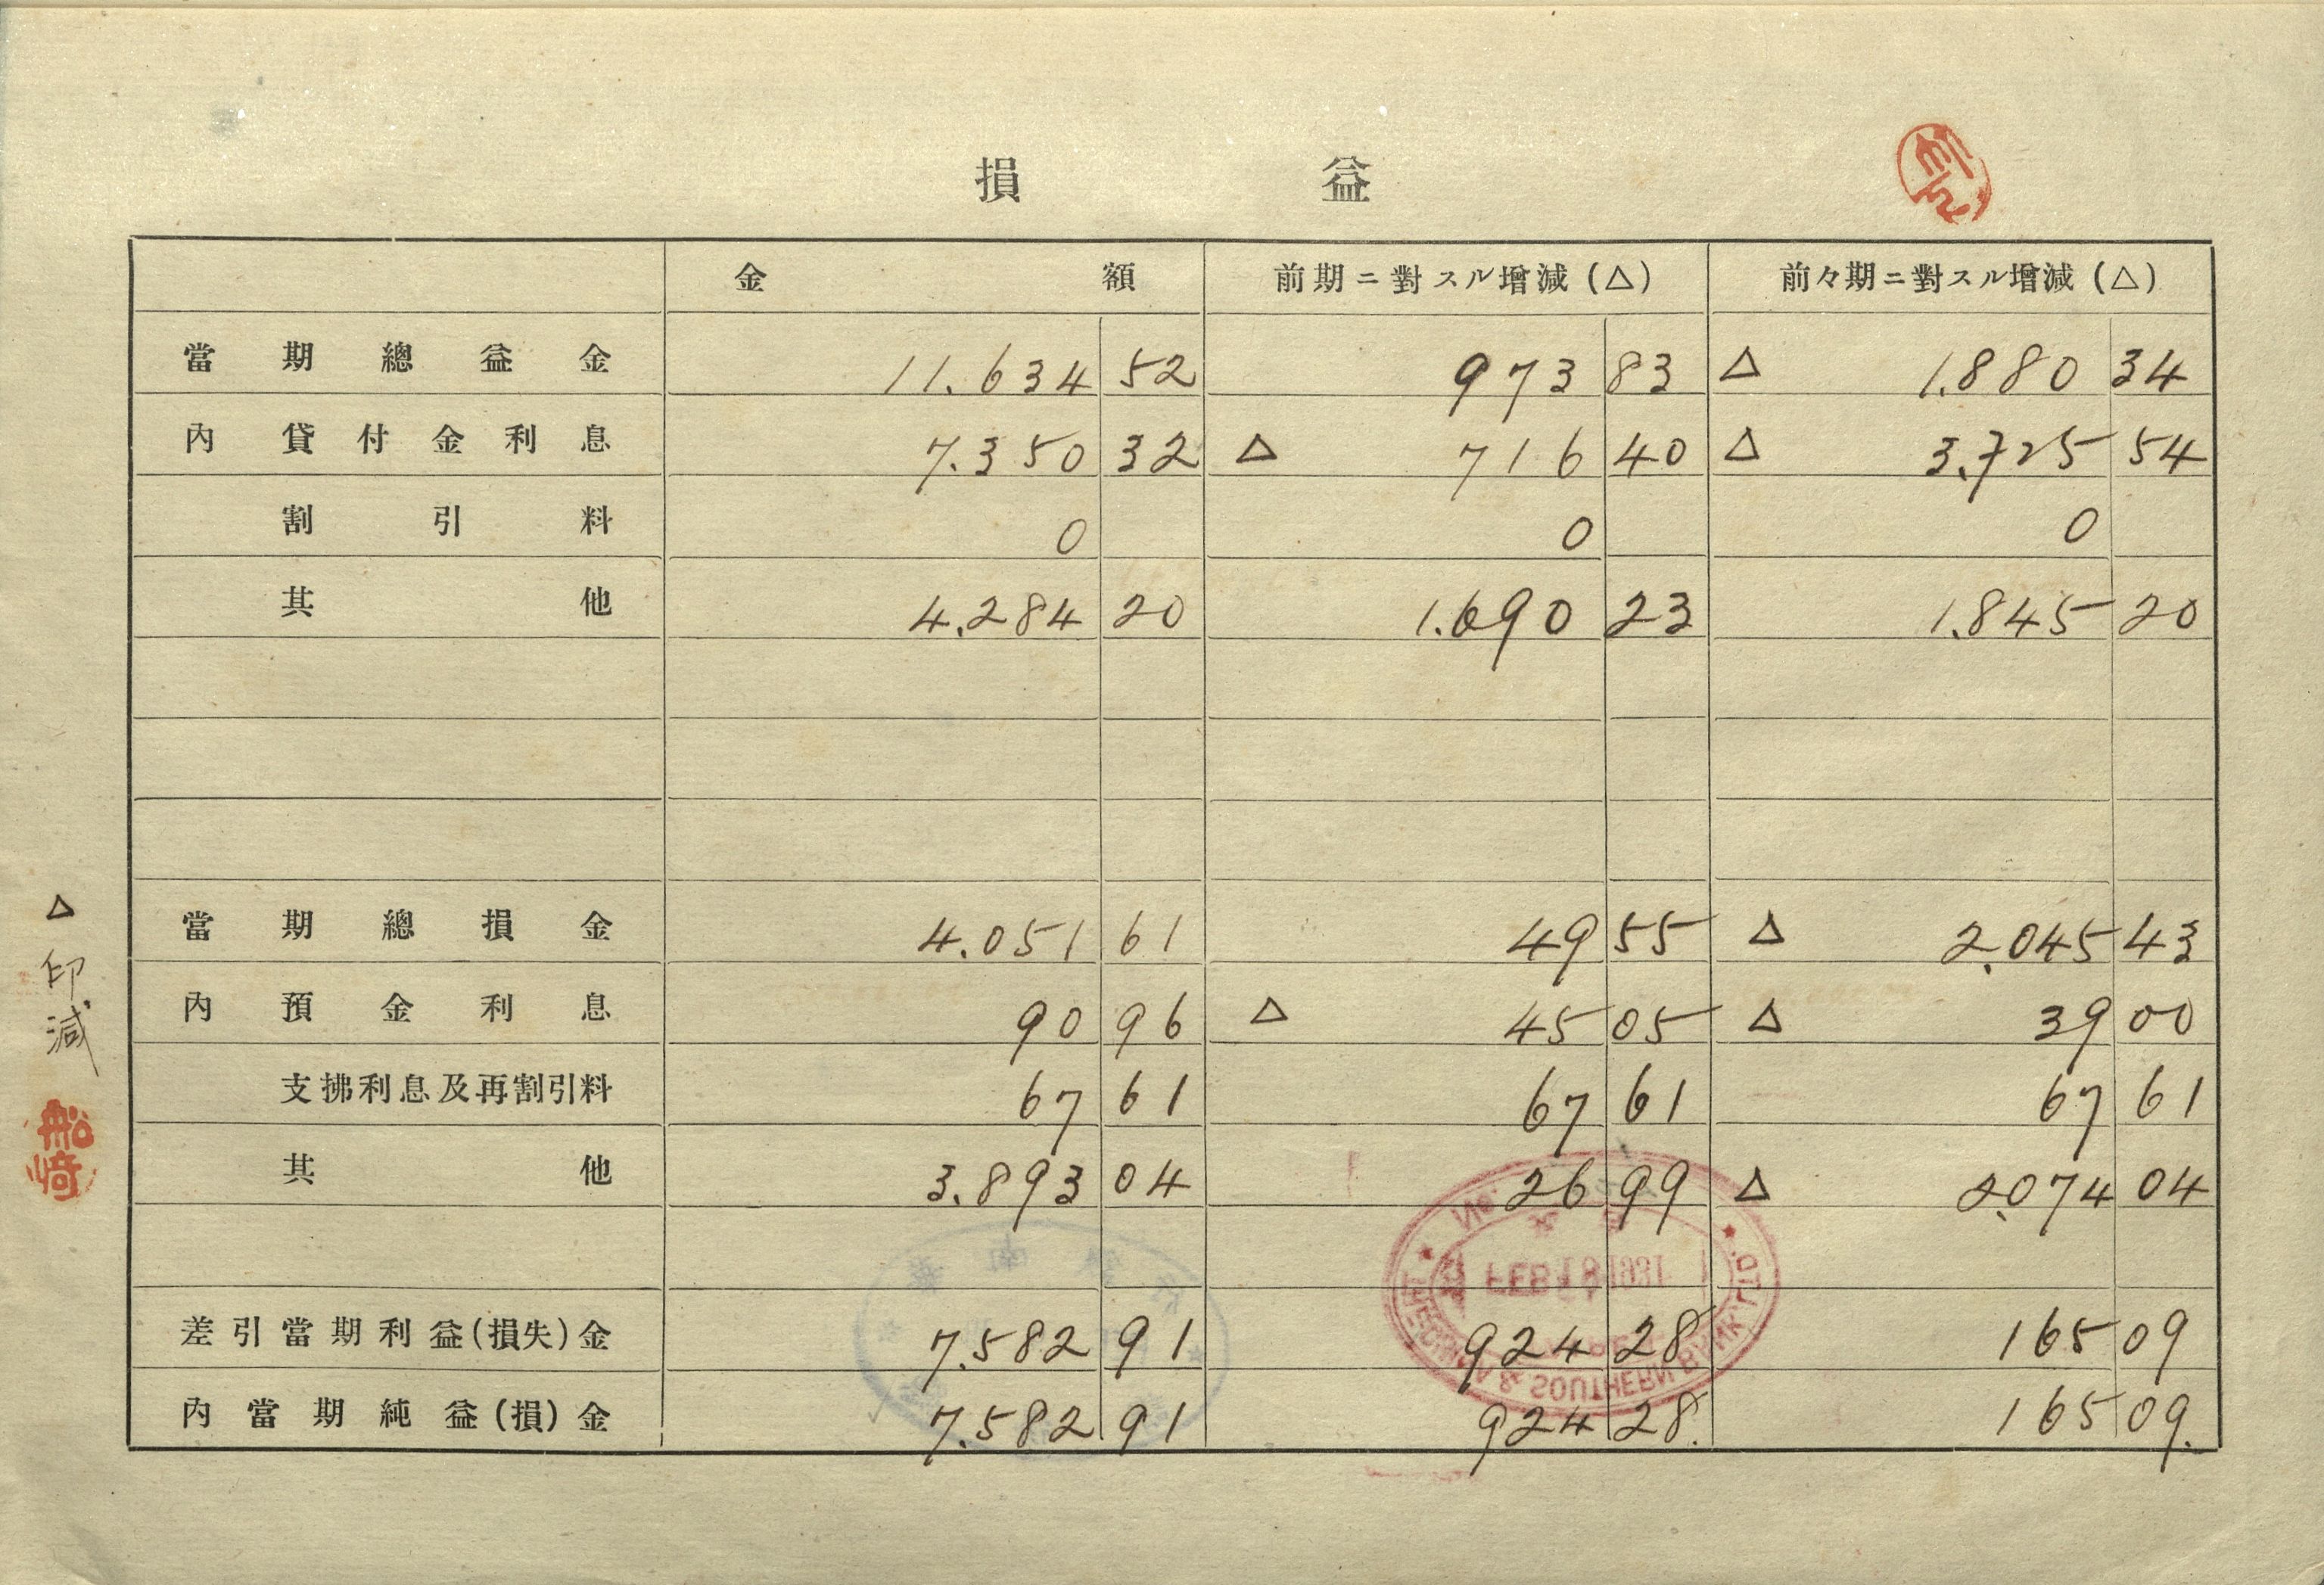 損益
金額 前期ニ對スル增減(△) 前々期ニ對スル增減(△)
當期總益金 11.634 52 973 83 △ 1.880 34
內 貸付金利息 7.350 32 △ 716 40 △ 3.725 54
割引料 0 0 0
其他 4.284 20 1.690 23 1.845 20
當期總損金 4.051 61 49 55 △ 2.045 43
內 預金利息 90 96 △ 45 05 △ 39 00
支拂利息及再割引料 67 61 67 61 67 61
其他 3.893 04 26 99 △ 2.074 04
差引當期利益(損失)金 7.582 91 924 28 165 09
內當期純益(損)金 7.582 91 924 28. 165 09.
△印減
船崎
FEB 18 1931
& SOUTHERN BANK LTD.